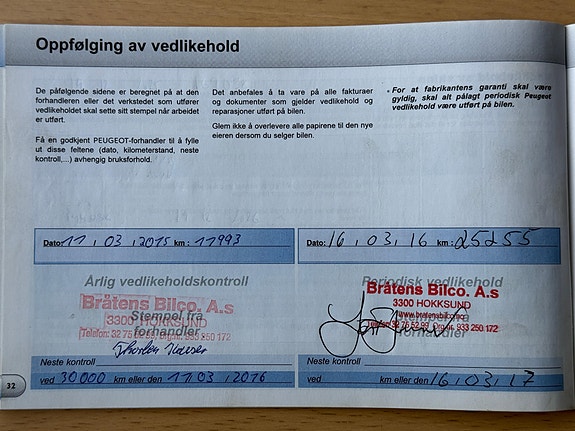 Oppfølging av vedlikehold
De påfølgende sidene er beregnet på at den
forhandleren eller det verkstedet som utfører
vedlikeholdet skal sette sitt stempel når arbeidet
er utført.
Få en godkjent PEUGEOT-forhandler til å fylle
ut disse feltene (dato, kilometerstand, neste
kontroll,...) avhengig bruksforhold.
Det anbefales å ta vare på alle fakturaer
og dokumenter som gjelder vedlikehold og
reparasjoner utført på bilen.
Glem ikke å overlevere alle papirene til den nye
eieren dersom du selger bilen.
* For at fabrikantens garanti skal være
gyldig, skal alt pålagt periodisk Peugeot
vedlikehold være utført på bilen.
Dato: 11 , 03 , 2015 km : 11993
Årlig vedlikeholdskontroll
Bråtens Bilco. A.s
3300 HOKKSUND
Stempel fra
forhandler
Telefon: 32 75 52 90, Org.nr. 933 250 172
Neste kontroll
ved 30000 km eller den 11 , 03 , 2016
Dato: 16 , 03 , 16 km : 25255
Periodisk vedlikehold
Bråtens Bilco. A.s
3300 HOKKSUND
www.bratensbilco.no
Stempel fra
forhandler
Org.nr. 933 250 172
Neste kontroll
ved km eller den 16 , 03 , 17
32